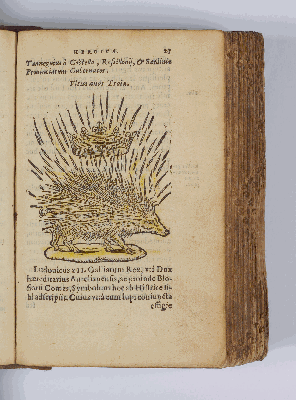 HEROICA. 27
Tannequinus à Castello, Rossilionij, & Sardiniæ
Prouinciarum Gubernator.
Vltus auos Troiæ.
Ludouicus XII. Galliarum Rex, vti Dux
hereditarius Aurelianensis, ac proinde Ble-
sium Comes, Symbolum hoc ab Histrice si-
bi adscripsit. Cuius vrna cum lupi coniuncta
effigie